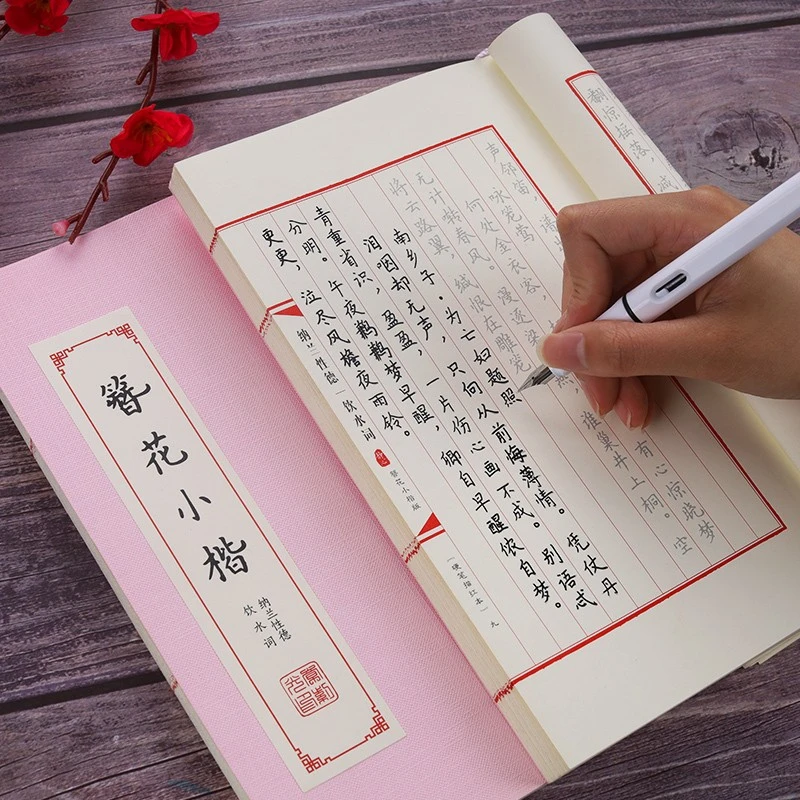 簪花小楷
纳兰性德
饮水词
翻惊摇落，减
声邻笛，谱
咏笼莺
何处金衣客，
有心惊晓梦
无计转春风。漫逐梁
燕，谁巢井上桐。空
将云路翼，缄恨在雕笼
南乡子。为亡妇题照
泪咽却无声，只向从前悔薄情。凭仗丹
青重省识，盈盈，一片伤心画不成。别语忒
分明。午夜鹣鹣梦早醒，卿自早醒侬自梦。
更更，泣尽风檐夜雨铃。
纳兰性德｜饮水词
簪花小楷版
（硬笔描红本）
九